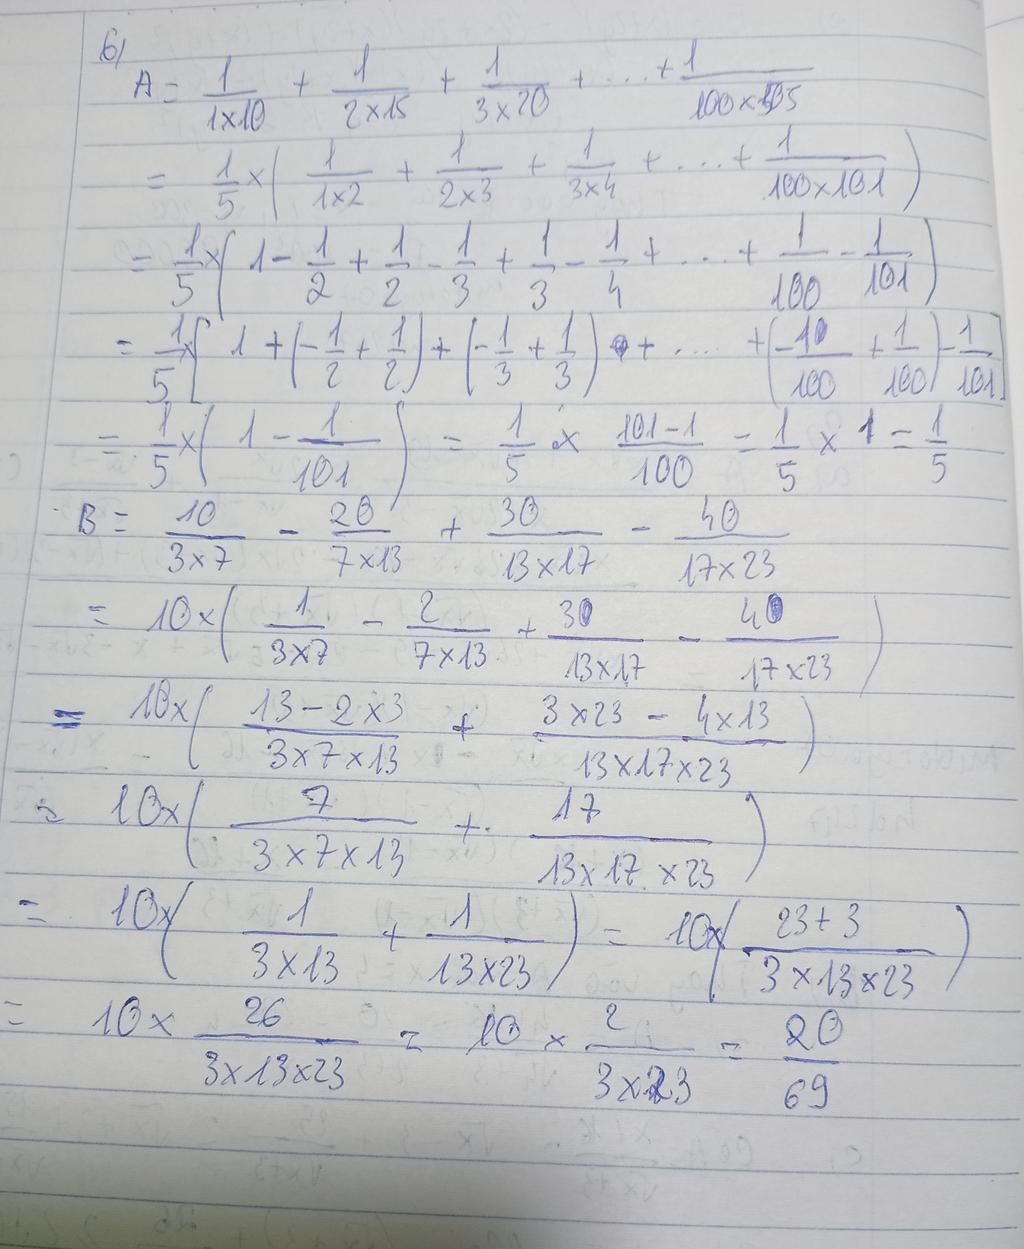 6)
A = 1/(1x10) + 1/(2x15) + 1/(3x20) + ... + 1/(100x105)
= 1/5 x ( 1/(1x2) + 1/(2x3) + 1/(3x4) + ... + 1/(100x101) )
= 1/5 x ( 1 - 1/2 + 1/2 - 1/3 + 1/3 - 1/4 + ... + 1/100 - 1/101 )
= 1/5 x [ 1 + (-1/2 + 1/2) + (-1/3 + 1/3) + .... + (-1/100 + 1/100) - 1/101 ]
= 1/5 x ( 1 - 1/101 ) = 1/5 x (101-1)/100 = 1/5 x 1 = 1/5
B = 10/(3x7) - 20/(7x13) + 30/(13x17) - 40/(17x23)
= 10x( 1/(3x7) - 2/(7x13) + 3/(13x17) - 4/(17x23) )
= 10x( (13-2x3)/(3x7x13) + (3x23 - 4x13)/(13x17x23) )
= 10x( 7/(3x7x13) + 17/(13x17x23) )
= 10x( 1/(3x13) + 1/(13x23) ) = 10x( (23+3)/(3x13x23) )
= 10x 26/(3x13x23) = 10 x 2/(3x23) = 20/69